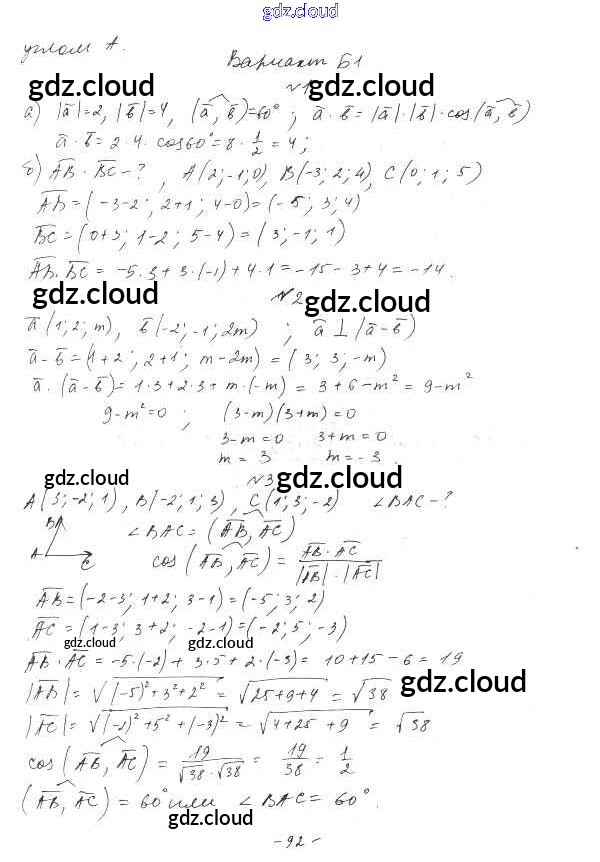 gdz.cloud
углом A.
Вариант Б1
gdz.cloud gdz.cloud
№1
а) |a̅|=2, |b̅|=4, (a̅, b̅)=60°; a̅·b̅=|a̅|·|b̅|·cos(a̅, b̅)
a̅·b̅=2·4·cos60°=8·1/2=4;
б) AB·BC-?, A(2;-1;0), B(-3;2;4), C(0;1;5)
gdz.cloud gdz.cloud
AB=(-3-2; 2+1; 4-0)=(-5; 3; 4)
BC=(0+3; 1-2; 5-4)=(3;-1; 1)
AB·BC=-5·3+3·(-1)+4·1=-15-3+4=-14.
gdz.cloud gdz.cloud
№2
a̅(1;2;m), b̅(-2;-1;2m); a̅⊥(a̅-b̅)
a̅-b̅=(1+2; 2+1; m-2m)=(3; 3;-m)
a̅·(a̅-b̅)=1·3+2·3+m·(-m)=3+6-m²=9-m²
9-m²=0; (3-m)(3+m)=0
3-m=0 3+m=0
m=3 m=-3.
gdz.cloud gdz.cloud
№3
A(3;-2;1), B(-2;1;3), C(1;3;-2) ∠BAC-?
∠BAC=(AB, AC)
B
A C
cos(AB, AC)=AB·AC/|AB|·|AC|
AB=(-2-3; 1+2; 3-1)=(-5; 3; 2)
AC=(1-3; 3+2; -2-1)=(-2; 5;-3)
gdz.cloud gdz.cloud
AB·AC=-5·(-2)+3·5+2·(-3)=10+15-6=19
|AB|=√(-5)²+3²+2²=√25+9+4=√38
gdz.cloud
|AC|=√(-2)²+5²+(-3)²=√4+25+9=√38
cos(AB, AC)=19/√38·√38=19/38=1/2
(AB, AC)=60° или ∠BAC=60°.
gdz.cloud gdz.cloud
-92-